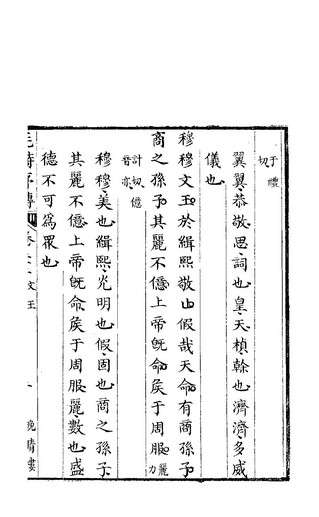 于禮切
翼翼恭敬思詞也皇天楨榦也濟濟多威
儀也
穆穆文王於緝熙敬止假哉天命有商孫子
商之孫子其麗不億上帝旣命矦于周服麗力
計切億音亦
穆穆美也緝熙光明也假固也商之孫子
其麗不億上帝旣命矦于周服麗數也盛
德不可為眾也
毛詩傳 文王 一 晚晴